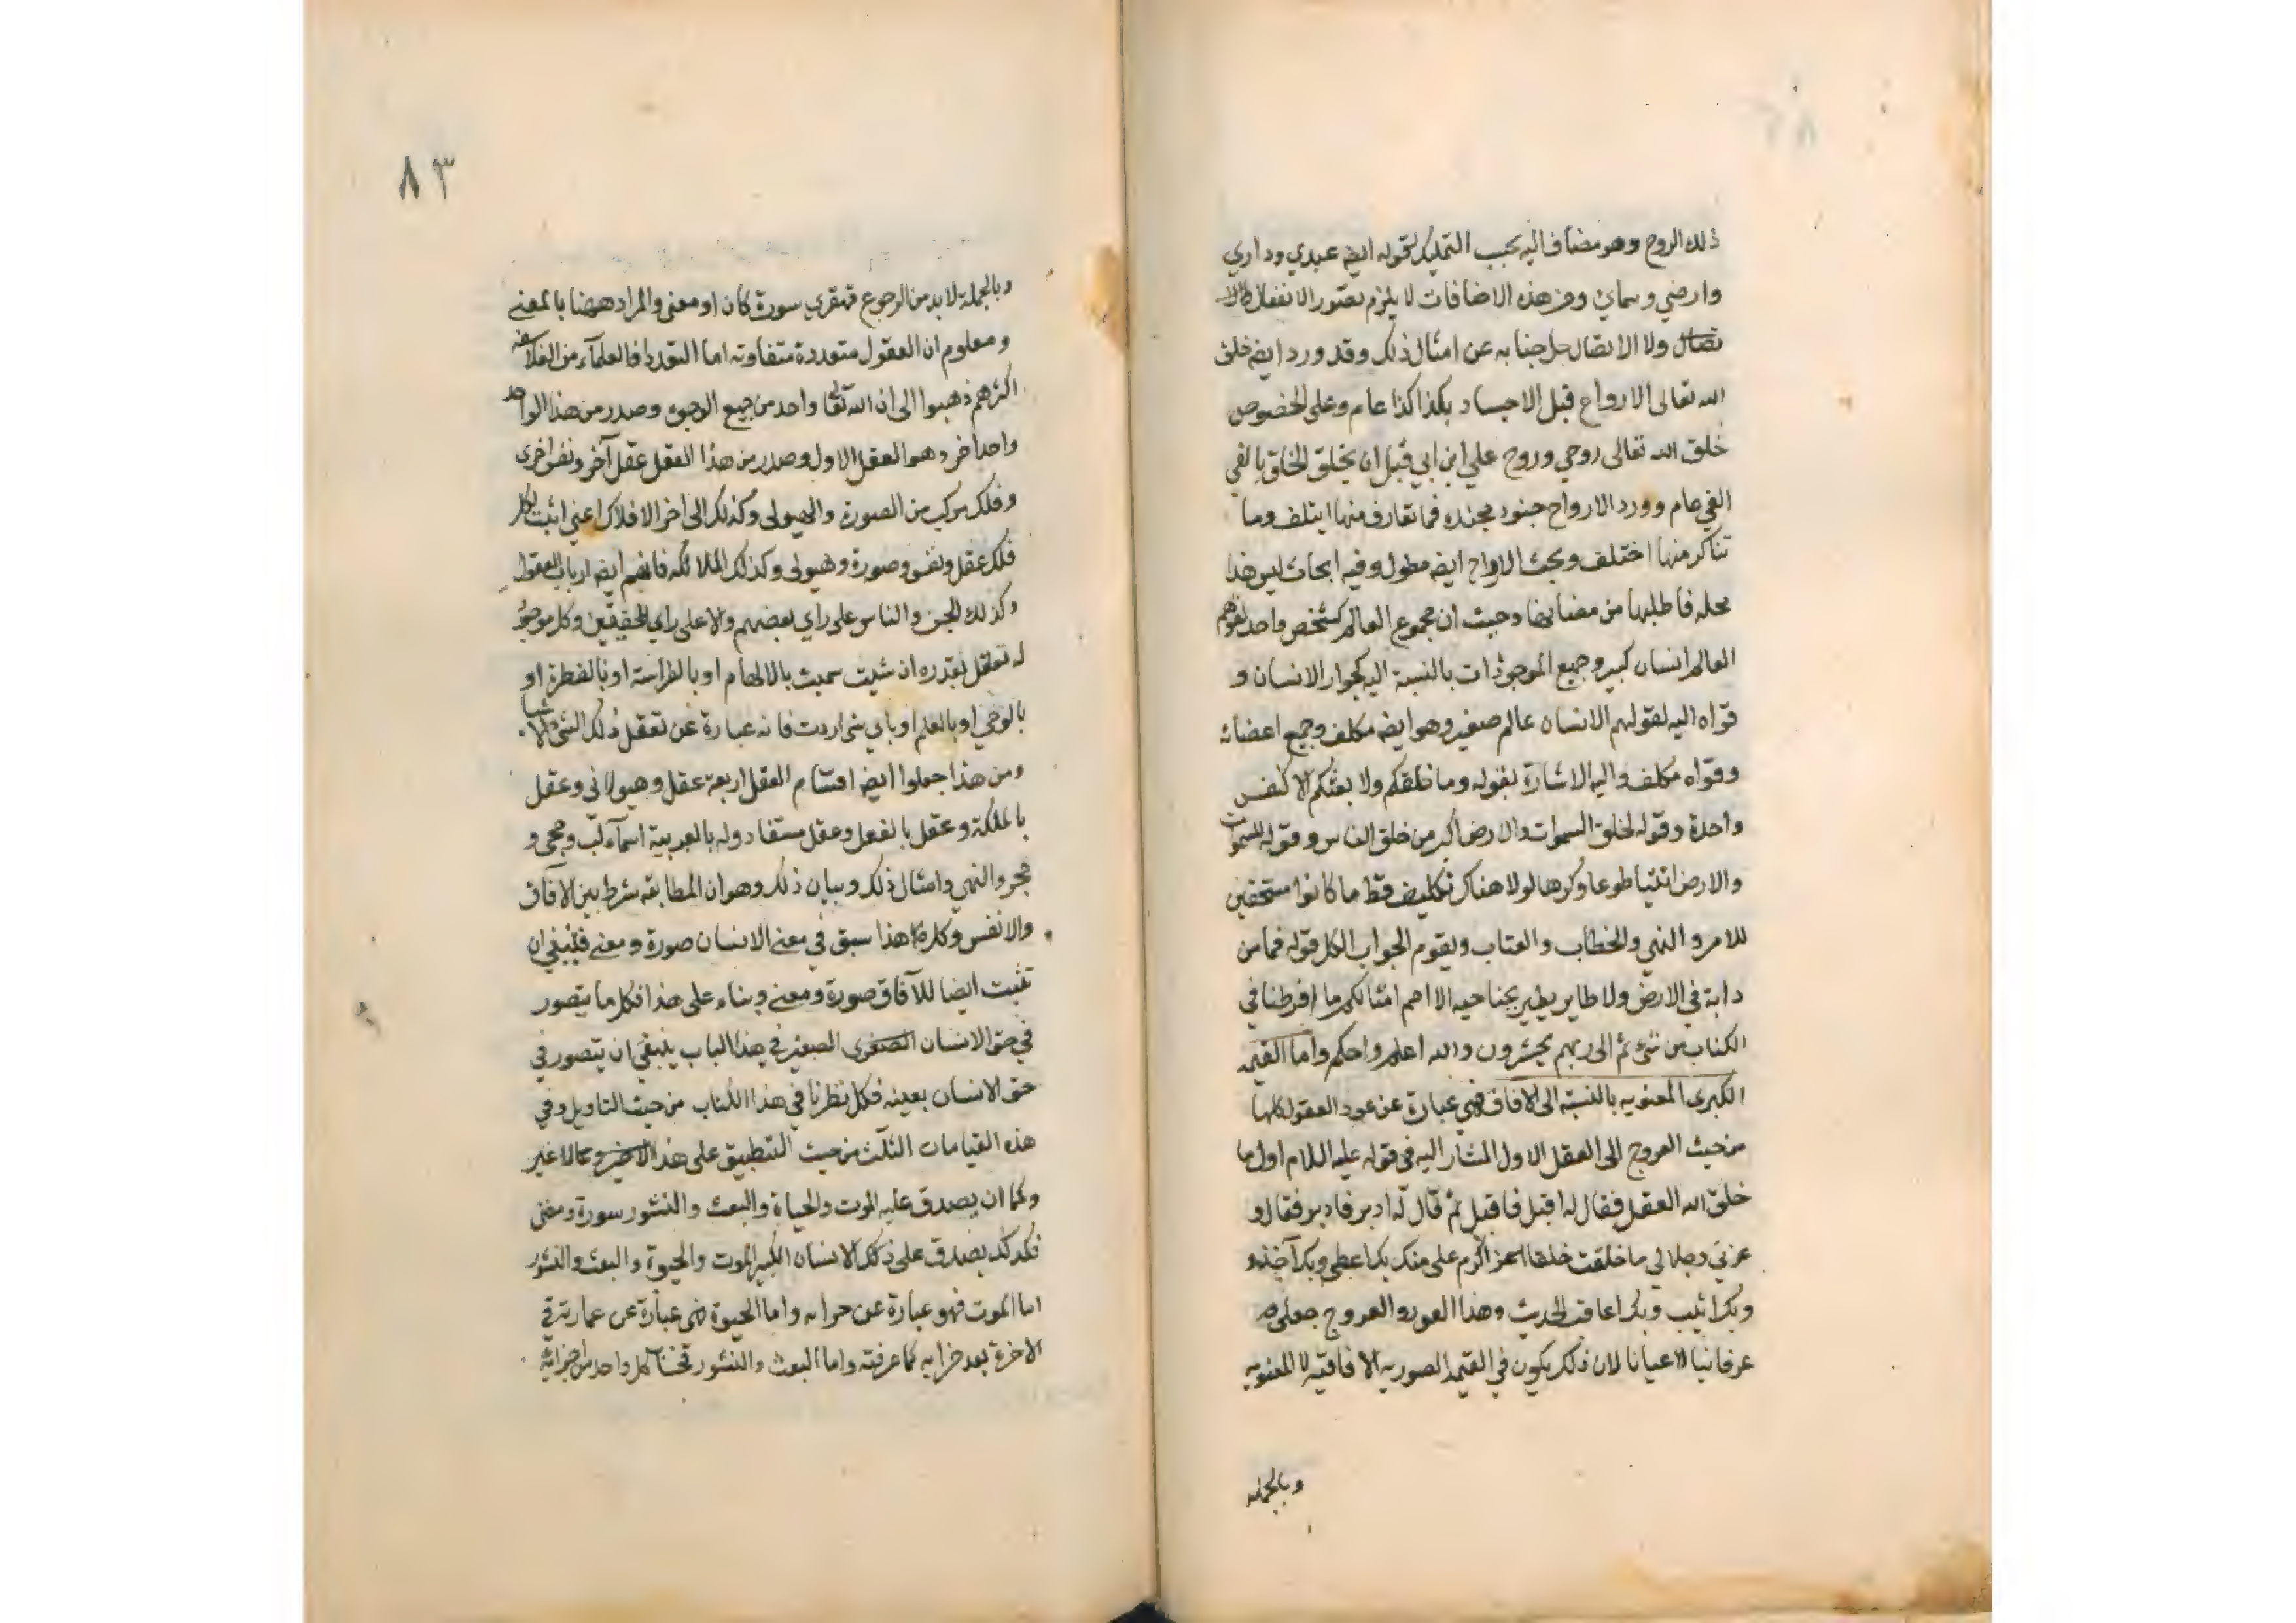 ذلك الروح وهو مضاف اليه بحسب التمليك لقوله ايضه عبدي وداري
وارضي وسمائي ومن هذه الاضافات لا يلزم تصور الانفصال
ولا الاتصال جل جنابه عن امثال ذلك وقد ورد ايضه خلق
الله تعالى الارواح قبل الاجساد بكذا كذا عام وعلى الخصوص
خلق الله تعالى روحي وروح علي ابن ابي قبل ان يخلق الخلق بالفي
الفي عام وورد الارواح جنود مجنده فما تعارف منها ايتلف وما
تناكر منها اختلف وبحث الارواح ايضه مطول وفيه ابحاث ليس هذا
محله فاطلبها من مضانها وحيث ان مجموع العالم كشخص واحد لقولهم
العالم انسان كبير وجميع الموجودات بالنسبة اليه كجوار الانسان و
قواه اليه لقولهم الانسان عالم صغير وهو ايضه مكلف وجميع اعضائه
وقواه مكلف واليه الاشارة بقوله وما خلقكم ولا بعثكم الا كنفس
واحدة وقوله لخلق السموات والارض اكبر من خلق الناس وقوله للسموات
والارض ائتيا طوعا وكرها لولا هناك تكليف قط ما كانوا مستحقين
للامر والنهي والخطاب والعتاب ويقوم الجواب الكل قوله فما من
دابة في الارض ولا طاير يطير بجناحيه الا امم امثالكم ما افرطنا في
الكتاب من شئ ثم الى ربهم يحشرون والله اعلم واحكم واما القيمه
الكبرى المعنويه بالنسبة الى الافاق فهي عبارة عن عود العقول كلها
من حيث العروج الى العقل الاول المشار اليه في قوله عليه السلام اول ما
خلق الله العقل فقال له اقبل فاقبل ثم قال له ادبر فادبر فقال و
عزتي وجلالي ما خلقت خلقا اكرم علي منك بك اعطي وبك آخذ و
وبك اثيب وبك اعاقب الحديث وهذا العود والعروج
عرفانيا لا عيانا لان ذلك يكون في القيمه الصوريه الافاقيه لا المعنويه
وبالجمله
٨٣
وبالجملة لا بد من الرجوع قهقري سورة كان او معنى والمراد ههنا بالمعنى
ومعلوم ان العقول متعددة متفاوته اما التعدد فالعلماء من الفلاسفه
اكثرهم ذهبوا الى ان الله تعالى واحد من جميع الوجوه وصدر من هذا الواحد
واحدا خر وهو العقل الاول وصدر من هذا العقل عقل آخر ونفس اخرى
وفلك مركب من الصورة والهيولى وكذلك الى اخر الافلاك اعني اثبت لكل
فلك عقل ونفس وصورة وهيولى وكذلك الملائكه فانهم ايضه ارباب العقول
وكذلك الجن والناس على راي بعضهم والا على راي المحققين وكل موجود
له تعقل بقدره ان شئت سميت بالالهام او بالفراسة او بالفطرة او
بالوحي او بالعلم او باي شئ اردت فانه عبارة عن تعقل ذلك الشئ
ومن هذا جعلوا ايضه اقسام العقل اربعة عقل وهيولاني وعقل
بالملكة وعقل بالفعل وعقل مستفاد وله بالعربية اسمآء لب وحجى و
حجر والنهي وامثال ذلك وبيان ذلك وهو ان المطابقه شرط بين الآفاق
والانفس وكلما هذا سبق في معنى الانسان صورة ومعنى فينبغي ان
تثبت ايضا للآفاق صورة ومعنى وبناء على هذا فكل ما يتصور
في حق الانسان الصغرى الصغير في هذا الباب ينبغي ان يتصور في
حق الانسان بعينه فكل نظرنا في هذا الكتاب من حيث التاويل وفي
هذه القيامات الثلث من حيث التطبيق على هذا لا غير
وكما ان يصدق عليه الموت والحياة والبعث والنشور سورة ومعنى
فكذلك يصدق على ذلك الانسان الكبير الموت والحيوة والبعث والنشور
اما الموت فهو عبارة عن خرابه واما الحيوة فهي عبارة عن عمارته في
الاخرة بعد خرابه كما عرفته واما البعث والنشور كل واحد من اجزائه